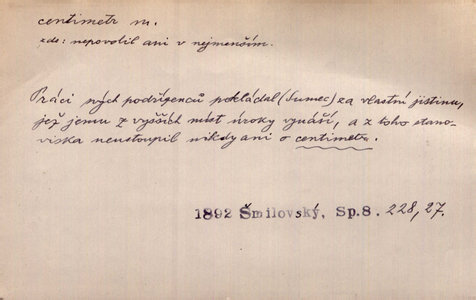 centimetr m.
zde: nepovolil ani v nejmenším.
Práci svých podřízenců pokládal (Sumec) za vlastní jistinu,
jež jemu z vyšších míst úroky vynáší, a z toho stano-
viska neustoupil nikdy ani o centimetr.
1892 Šmilovský, Sp.8. 228,27.